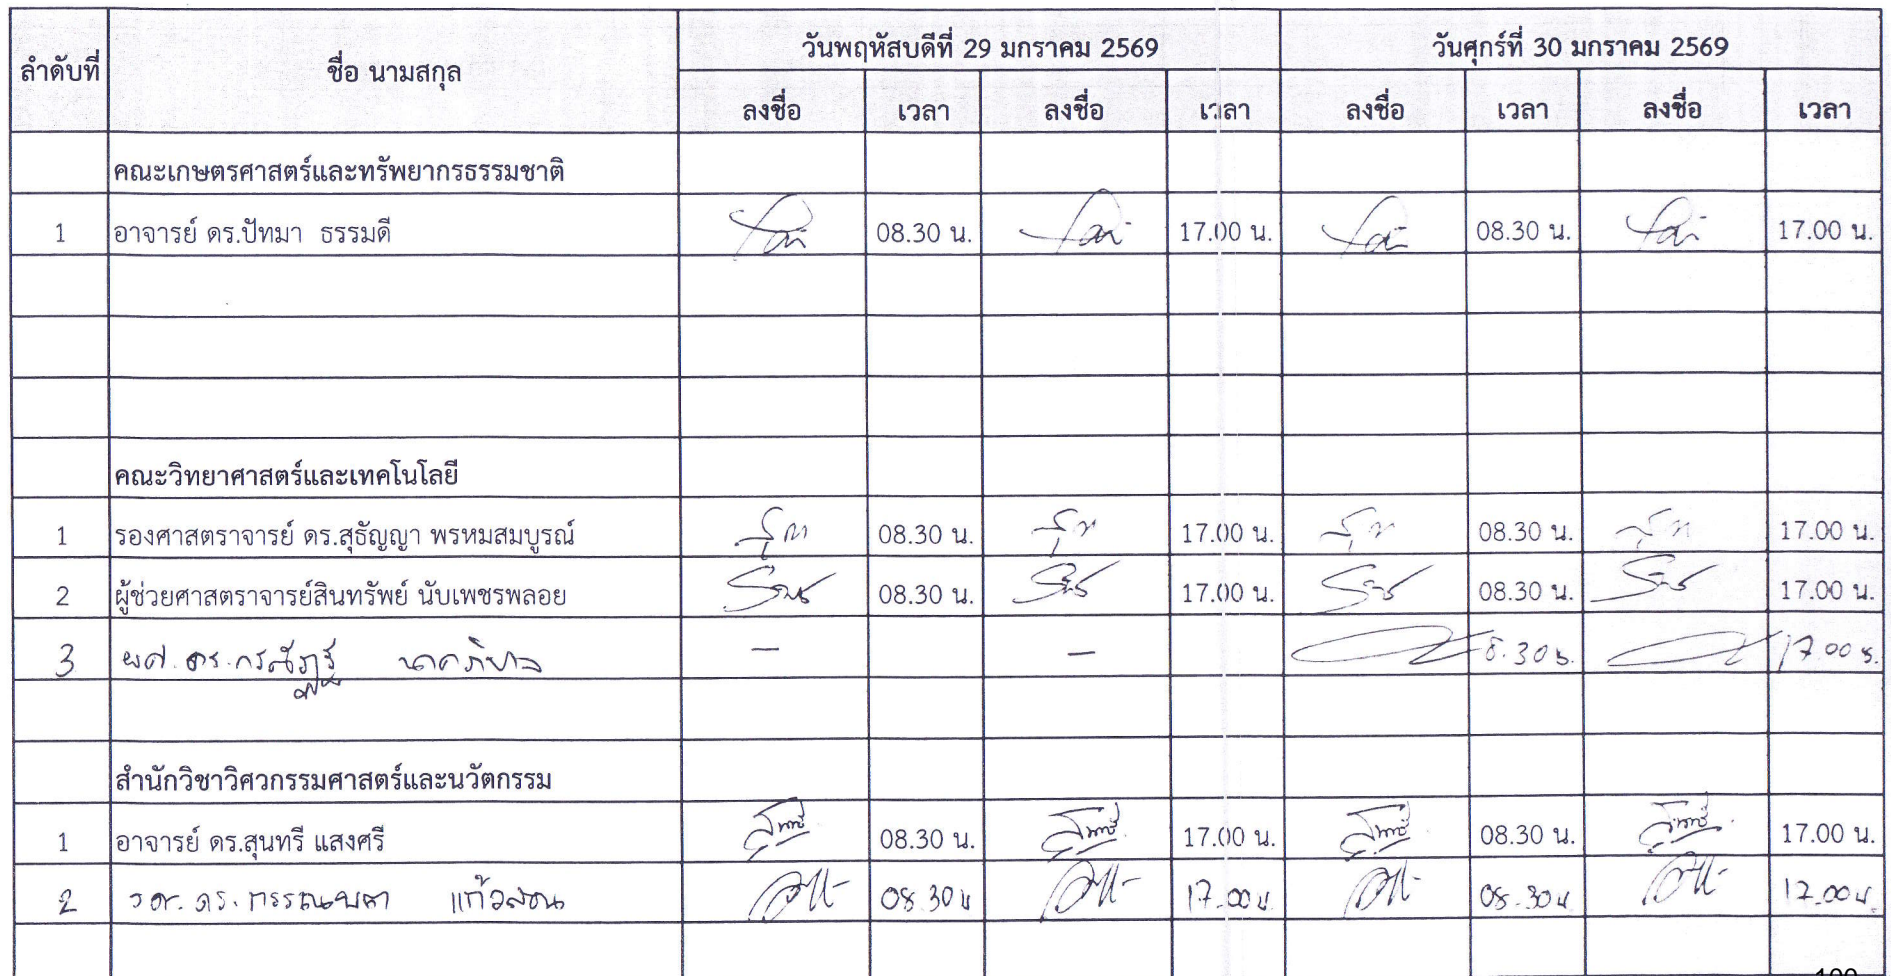 ลำดับที่ ชื่อ นามสกุล วันพฤหัสบดีที่ 29 มกราคม 2569 วันศุกร์ที่ 30 มกราคม 2569
ลงชื่อ เวลา ลงชื่อ เวลา ลงชื่อ เวลา ลงชื่อ เวลา
คณะเกษตรศาสตร์และทรัพยากรธรรมชาติ
1 อาจารย์ ดร.ปัทมา ธรรมดี 08.30 น. 17.00 น. 08.30 น. 17.00 น.
คณะวิทยาศาสตร์และเทคโนโลยี
1 รองศาสตราจารย์ ดร.สุธัญญา พรหมสมบูรณ์ 08.30 น. 17.00 น. 08.30 น. 17.00 น.
2 ผู้ช่วยศาสตราจารย์สินทรัพย์ นับเพชรพลอย 08.30 น. 17.00 น. 08.30 น. 17.00 น.
3 ผศ.ดร. - - 8.30 น. 17.00 น.
สำนักวิชาวิศวกรรมศาสตร์และนวัตกรรม
1 อาจารย์ ดร.สุนทรี แสงศรี 08.30 น. 17.00 น. 08.30 น. 17.00 น.
2 รศ.ดร. 08.30 น 17.00 น. 08.30 น. 17.00 น.